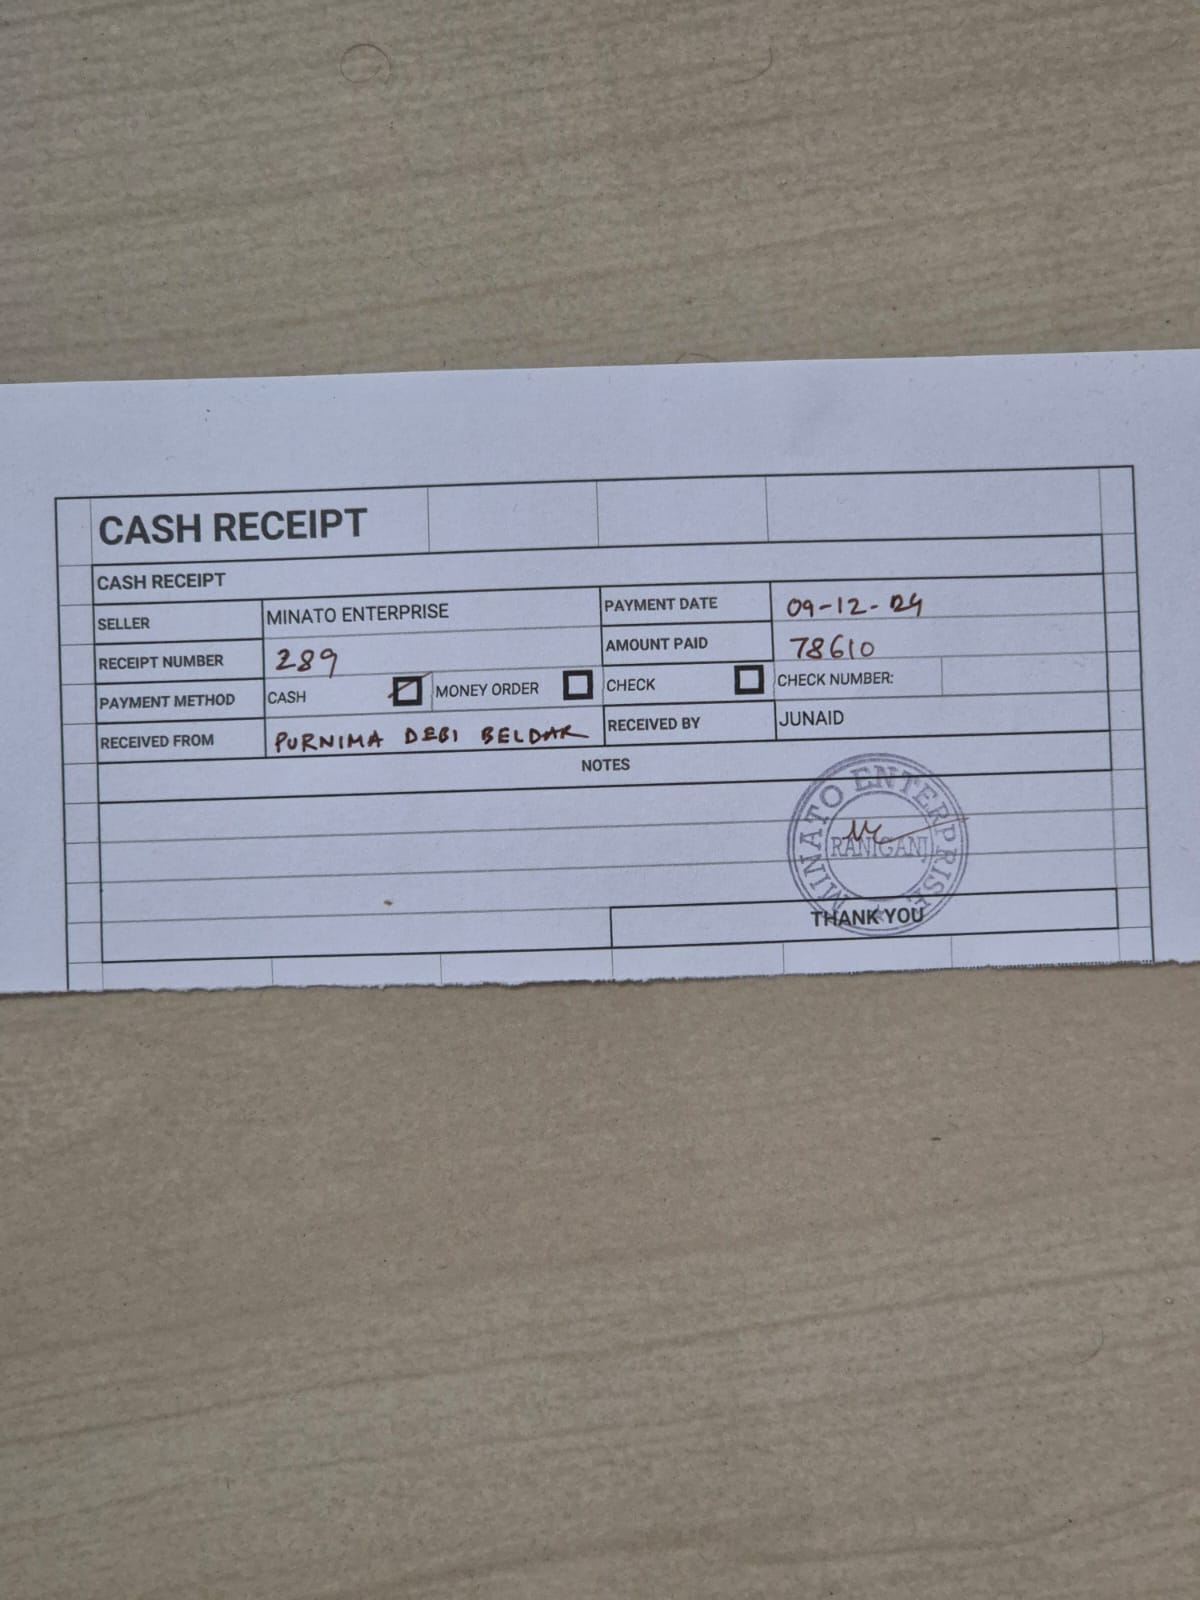 CASH RECEIPT
CASH RECEIPT
SELLER MINATO ENTERPRISE PAYMENT DATE 09-12-24
RECEIPT NUMBER 289 AMOUNT PAID 78610
PAYMENT METHOD CASH MONEY ORDER CHECK CHECK NUMBER:
RECEIVED FROM PURNIMA DEBI BELDAR RECEIVED BY JUNAID
NOTES
MINATO ENTERPRISE
RANIGANJ
THANK YOU